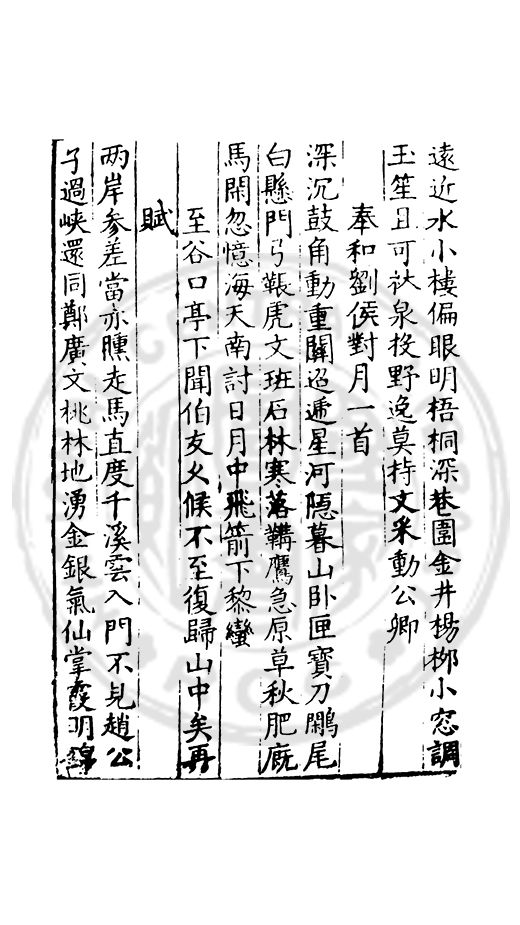 遠近水小樓偏眼明梧桐深巷圍金井楊柳小窓調
玉笙且可祑泉投野逸莫持文采動公卿
奉和劉侯對月一首
深沉鼓角動重關迢遞星河隱暮山卧匣寶刀鵰尾
白懸門弓韔虎文班石林寒落鞲鷹急原草秋肥廐
馬閑忽憶海天南討日月中飛箭下黎蠻
至谷口亭下聞伯友久候不至復歸山中矣再
賦
兩岸參差當亦曛走馬直度千溪雲入門不見趙公
子過峽還同鄭廣文桃林地湧金銀氣仙掌霞明錦